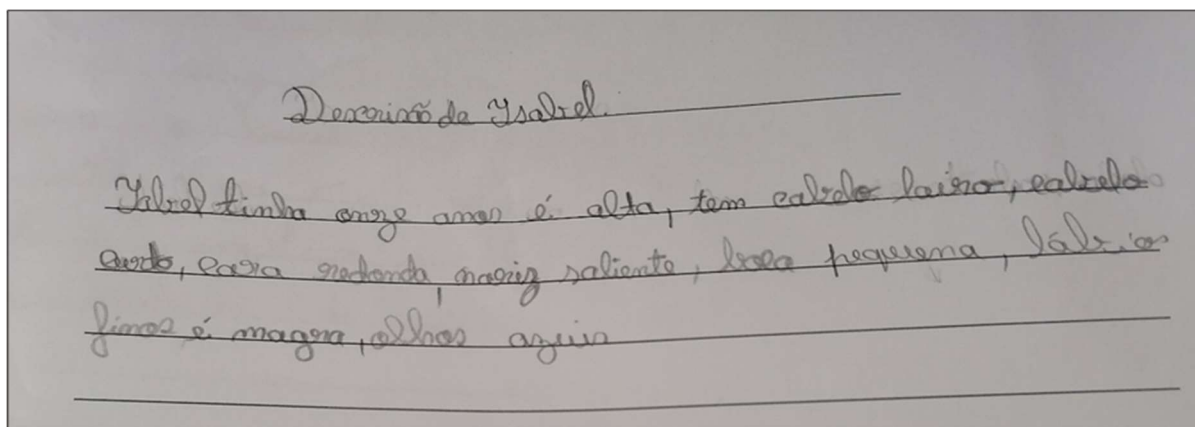 Descrixão de Ysabel.
Ysbel tinha onze anos é alta, tem cabelo loiro, cabelo
curto, cara redonda, nariz saliente, boca pequena, lábios
finos é magra, olhos azuis